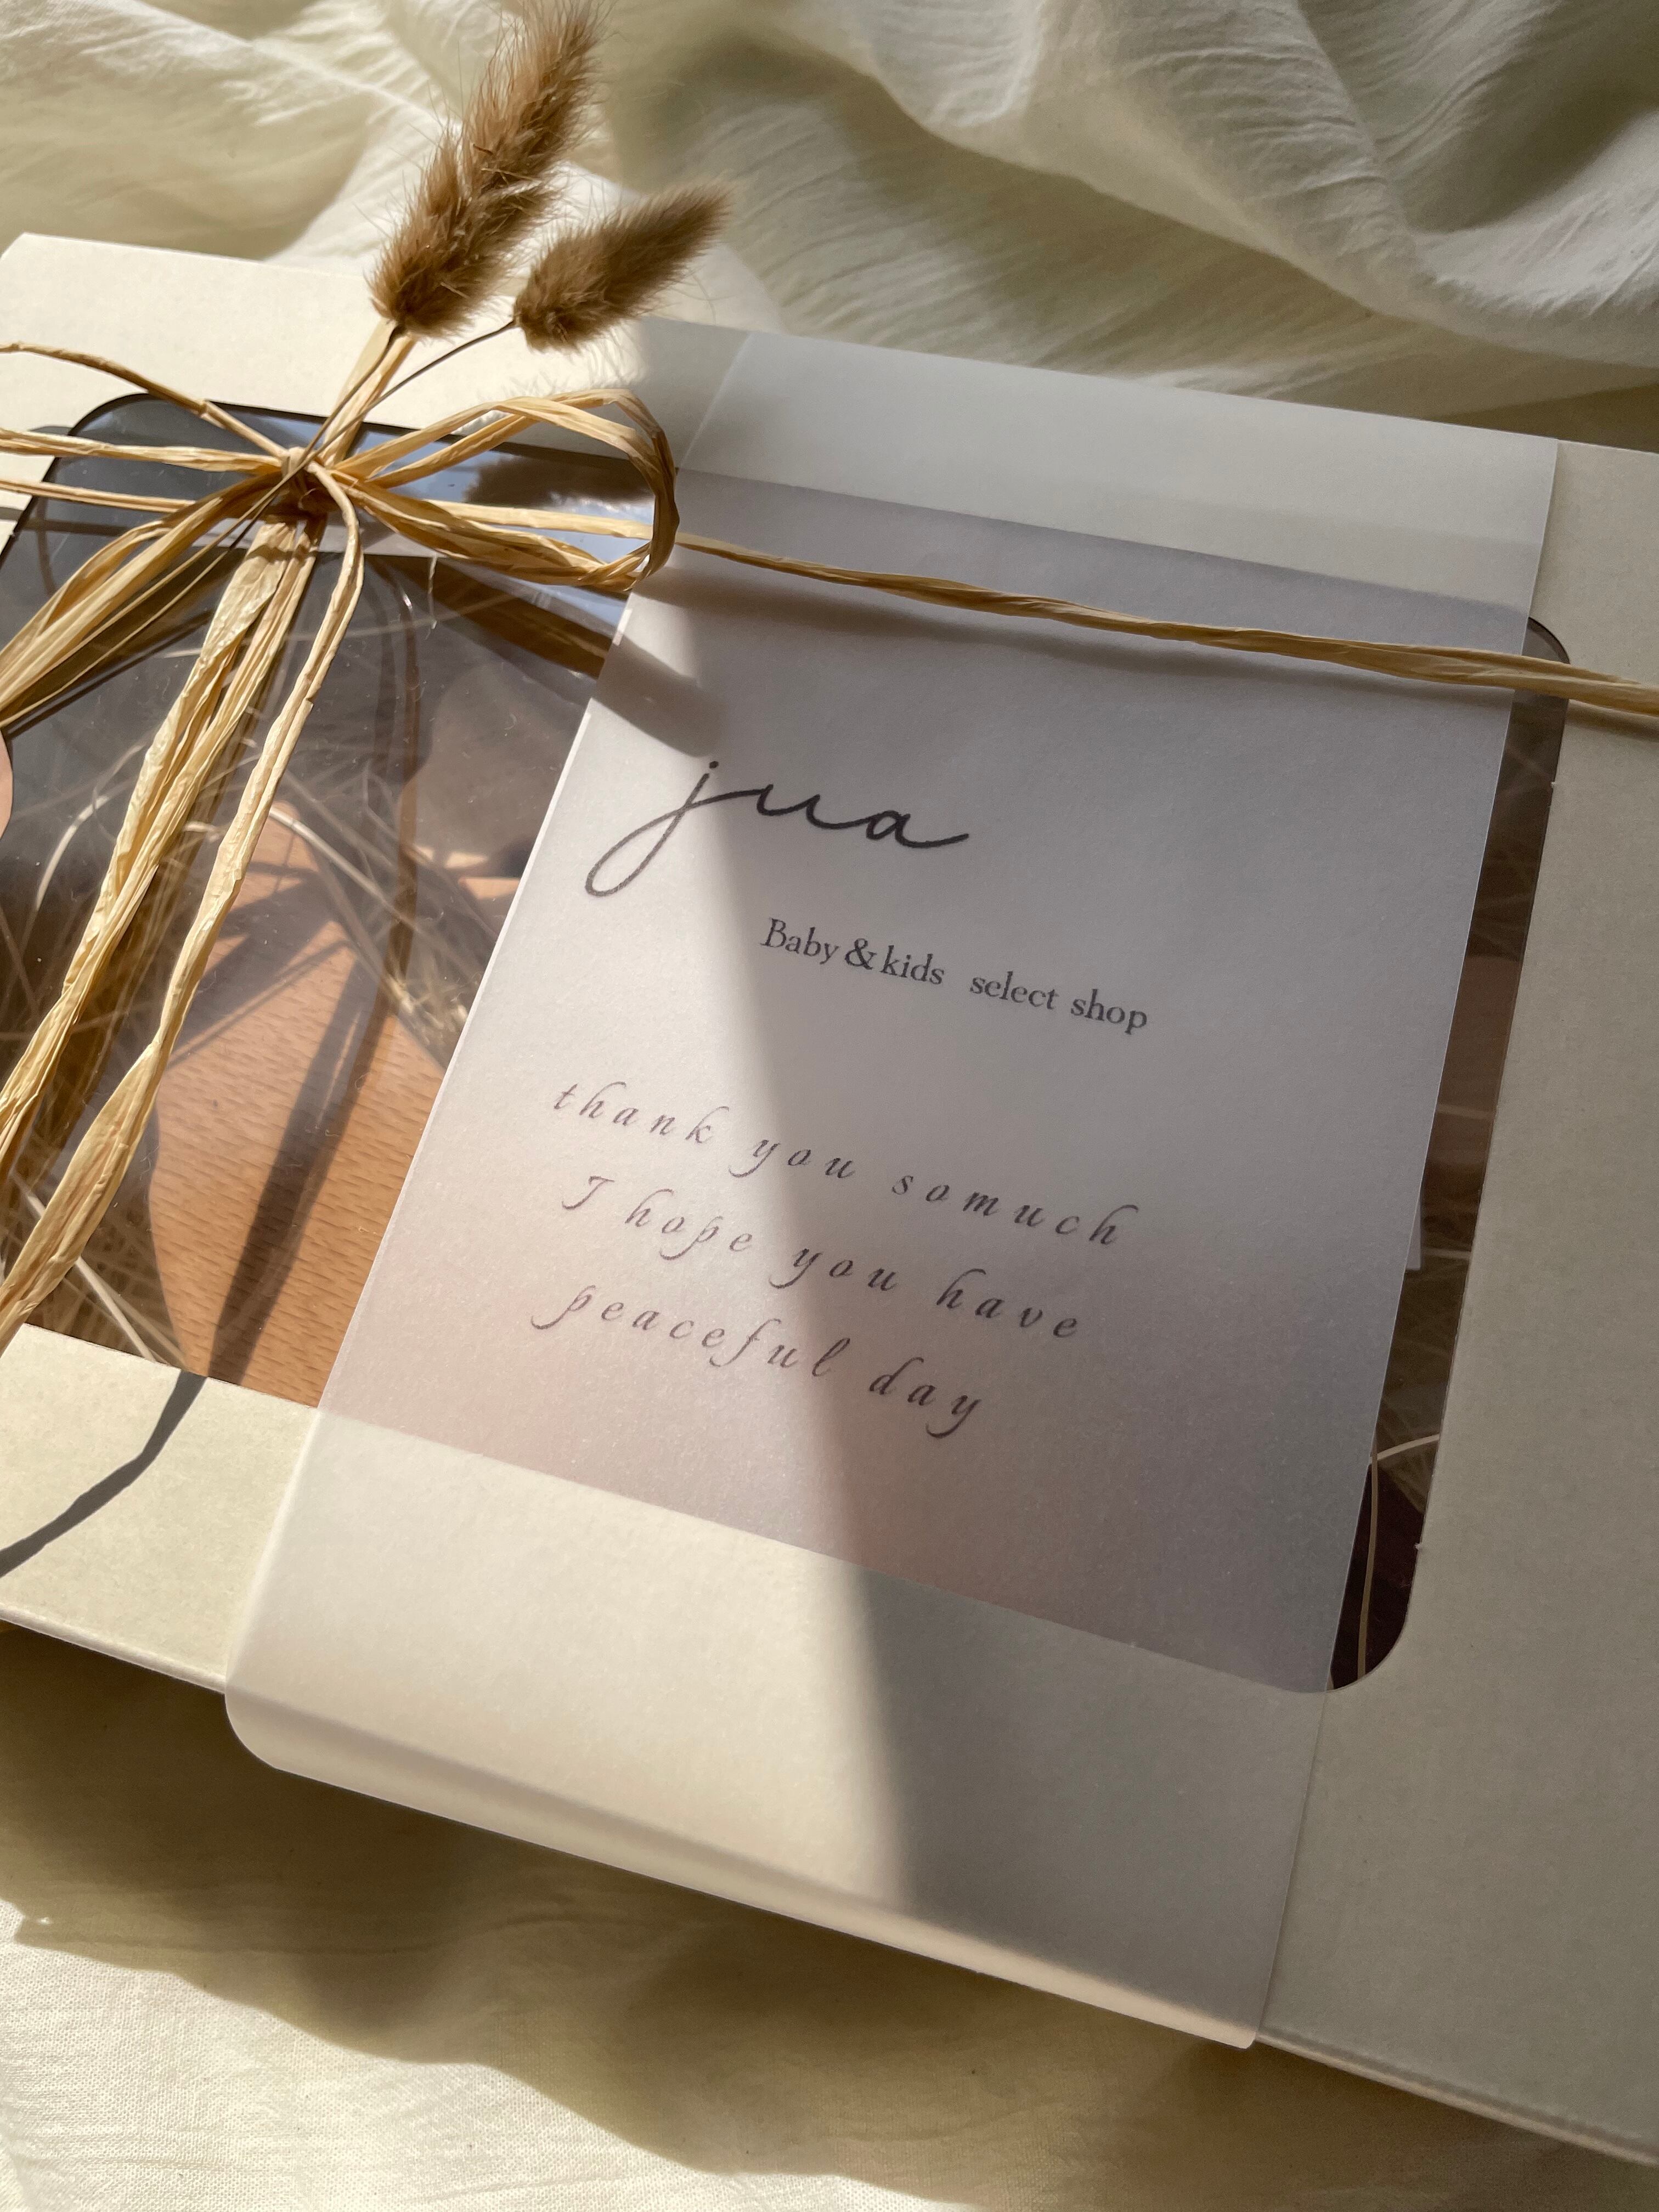 jua
Baby & kids select shop
thank you somuch
I hope you have
peaceful day